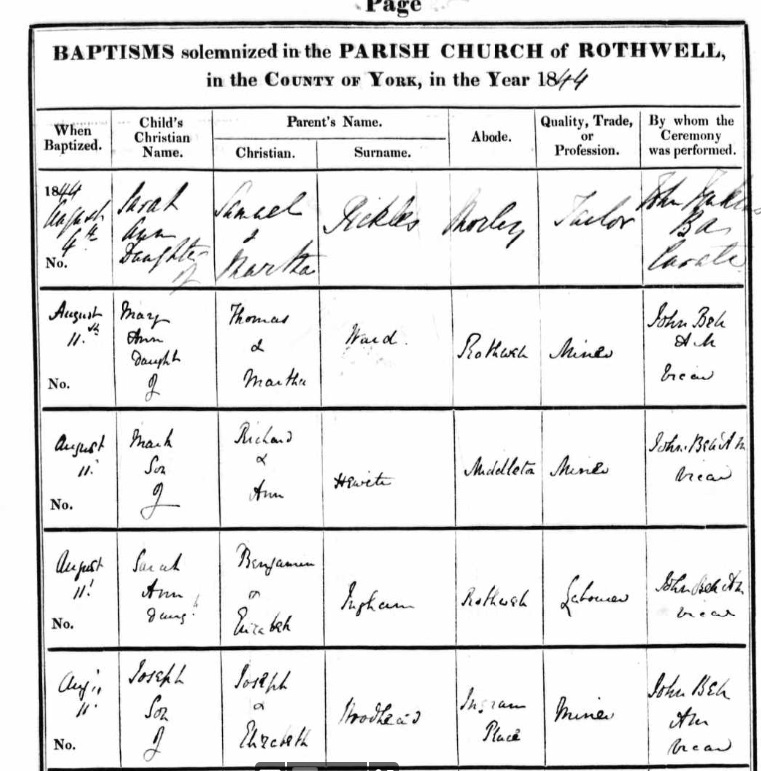 Page
BAPTISMS solemnized in the PARISH CHURCH of ROTHWELL,
in the COUNTY OF YORK, in the Year 1844
When Baptized.
Child's Christian Name.
Parent's Name.
Christian.
Surname.
Abode.
Quality, Trade, or Profession.
By whom the Ceremony was performed.
1844
August
4th
No.
Sarah
Ann
Daughter
of
Samuel
&
Martha
Pickles
Morley
Tailor
John
Curate
August
11th
No.
Mary
Ann
Daught
of
Thomas
&
Martha
Ward.
Rothwell
Miner
John Bell
A M
Vicar
August
11
No.
Mark
Son
of
Richard
&
Ann
Hewitt
Middleton
Miner
John Bell A M
Vicar
August
11
No.
Sarah
Ann
Daug
Benjamin
&
Elizabeth
Ingham
Rothwell
Labourer
John Bell A M
Vicar
Aug
11
No.
Joseph
Son
of
Joseph
&
Elizabeth
Woodhead
Ingram
Place
Miner
John Bell
A M
Vicar